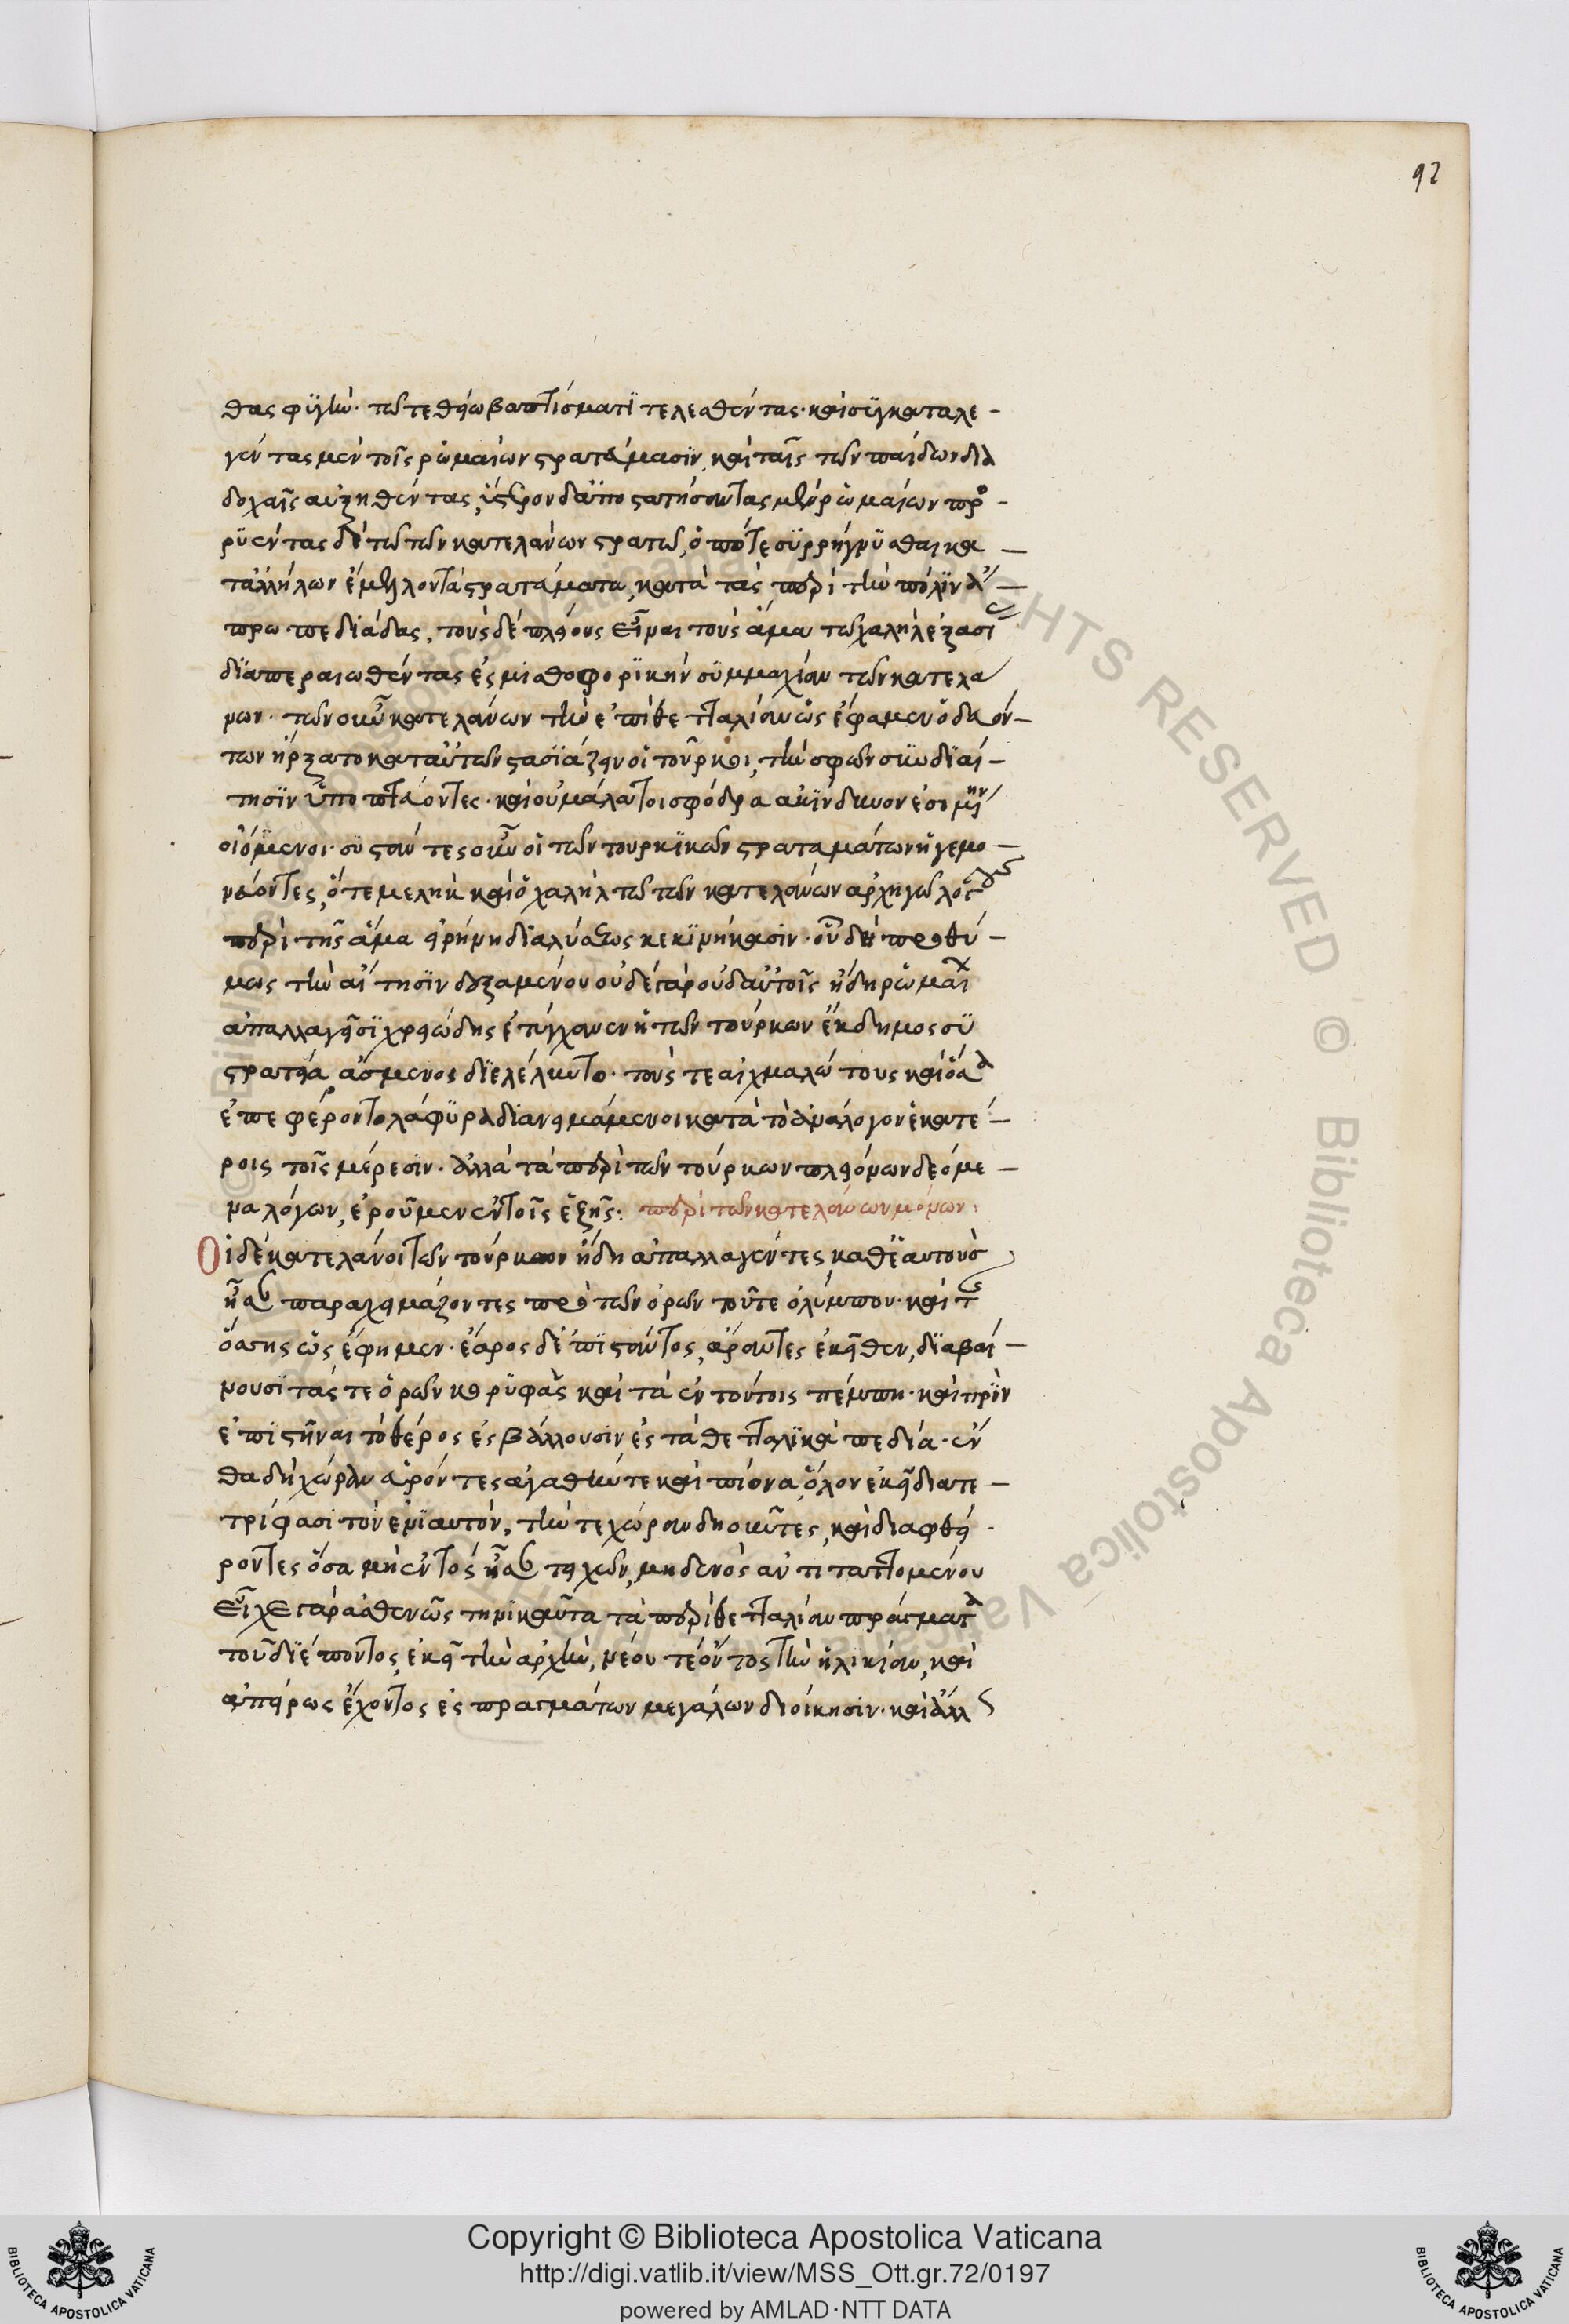 92
θας φυγὴν· τῷ τε θείῳ βαπτίσματι τελεσθέντας· καὶ συγκαταλε-
γέντας μὲν τοῖς ῥωμαίων στρατεύμασιν, καὶ ταῖς τῶν παίδων δια
δοχαῖς αὐξηθέντας, ὕστερον δ' ἀποστατήσαντας μὲν ῥωμαίων προσ-
ρυέντας δὲ τῷ τῶν κατελάνων στρατῷ, ὁπότε συρρήγνυσθαι κα-
τ' ἀλλήλων ἔμελλον τὰ στρατεύματα, κατὰ τὰς περὶ τὴν πόλιν ἄ-
πρω πεδιάδας, τοὺς δὲ πλείους εἶναι τοὺς ἅμα τῷ χαλὴλ ἐξ ἀσί
διαπεραιωθέντας ἐς μισθοφορικὴν συμμαχίαν τῶν κατελά
νων· τῶν οὖν κατελάνων τὴν ἐπὶ θετταλίαν ὡς ἔφαμεν ὁδευόν-
των ἤρξατο κατ' αὐτῶν στασιάζειν οἱ τοῦρκοι, τὴν σφῶν συνδιαί-
τησιν ὑποπτεύοντες· καὶ οὐ μάλα τοι σφόδρα ἀκίνδυνον ἐσομένην
οἰόμενοι· συστάντες οὖν οἱ τῶν τουρκικῶν στρατευμάτων ἡγεμο-
νεύοντες, ὅ τε μελὴκ καὶ ὁ χαλὴλ τῷ τῶν κατελάνων ἀρχηγῷ λόγους
περὶ τῆς ἅμα εἰρήνῃ διαλύσεως κεκινήκασιν· οὗ δὴ προθύ-
μως τὴν αἴτησιν δεξαμένου οὐδὲ γὰρ οὐδ' αὐτοῖς ἤδη ῥωμαί
ἀπαλλαγεῖσι χρειώδης ἐτύγχανεν ἡ τῶν τούρκων ἔκδημος συ
στρατεία ἄσμενοι διελέλυντο· τούς τε αἰχμαλώτους καὶ ὅσα
ἐπεφέροντο λάφυρα διανειμάμενοι κατὰ τὸ ἀνάλογον ἑκατέ-
ροις τοῖς μέρεσιν· ἀλλὰ τὰ περὶ τῶν τούρκων πλειόνων δεόμε-
να λόγων, ἐροῦμεν ἐν τοῖς ἑξῆς: περὶ τῶν κατελάνων μόνων:
Οἱ δὲ κατελάνοι τῶν τούρκων ἤδη ἀπαλλαγέντες καθ' ἑαυτοὺς
ἦσαν παραχειμάζοντες πρὸ τῶν ὁρῶν τοῦ τε ὀλύμπου· καὶ τῆς
ὄσσης ὡς ἔφημεν· ἔαρος δ' ἐπιστάντος, ἄραντες ἐκεῖθεν, διαβαί-
νουσι τάς τε ὀρῶν κορυφὰς καὶ τὰ ἐν τούτοις τέμπη· καὶ πρὶν
ἐπιστῆναι τὸ θέρος ἐσβάλλουσιν ἐς τὰ θετταλικὰ πεδία· ἔν
θα δὴ χώραν εὑρόντες ἀγαθήν τε καὶ πίονα, ὅλον ἐκεῖ διατε-
τρίφασι τὸν ἐνιαυτόν, τήν τε χώραν δῃοῦντες, καὶ διαφθεί-
ροντες ὅσα μὴ ἐντὸς ἦσαν τειχῶν, μηδενὸς ἀντιταττομένου
εἶχε γὰρ ἀσθενῶς τηνικαῦτα τὰ περὶ θετταλίαν πράγματα
τοῦ διέποντος ἐκεῖ τὴν ἀρχὴν, νέου τε ὄντος τὴν ἡλικίαν, καὶ
ἀπείρως ἔχοντος ἐς πραγμάτων μεγάλων διοίκησιν· καὶ ἄλλως
Copyright © Biblioteca Apostolica Vaticana
http://digi.vatlib.it/view/MSS_Ott.gr.72/0197
powered by AMLAD·NTT DATA